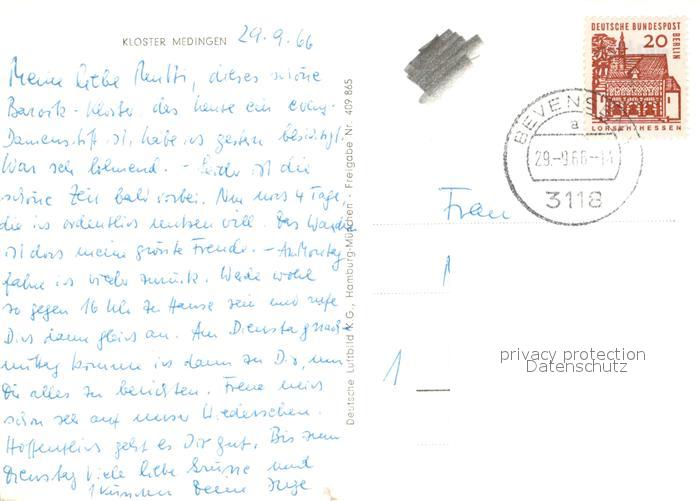 KLOSTER MEDINGEN 29.9.66
Meine liebe Mutti, dieses schöne
Barock-Kloster, das heute ein evang.
Damenstift ist, habe ich gestern besichtigt.
War sehr lohnend. - Leider ist die
schöne Zeit bald vorbei. Nur noch 4 Tage,
die ich ordentlich nutzen will. Das Wandern
ist doch meine grösste Freude. - Am Montag
fahre ich wieder zurück. Werde wohl
so gegen 16 Uhr zu Hause sein und rufe
Dich dann gleich an. Am Dienstagnach-
mittag komme ich dann zu Dir, um
Dir alles zu berichten. Freue mich
schon sehr auf unser Wiedersehen.
Hoffentlich geht es Dir gut. Bis zum
Dienstag viele liebe Grüsse und
1 Küsschen Deine Inge
Deutsche Luftbild K.G., Hamburg-München - Freigabe Nr. 409 865
DEUTSCHE BUNDESPOST
BERLIN
20
LORSCH/HESSEN
BEVENSEN
a
29.-9.66-14
3118
Frau
1
privacy protection
Datenschutz